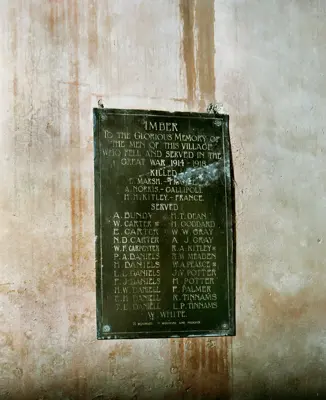 IMBER
TO THE GLORIOUS MEMORY OF
THE MEN OF THIS VILLAGE
WHO FELL AND SERVED IN THE
GREAT WAR 1914-1918
KILLED
MARSH
A. NORRIS - GALLIPOLI
KITLEY - FRANCE
SERVED
A. BUNDY H. F. DEAN
W. CARTER H. GODDARD
E. CARTER W. W. GRAY
N. D. CARTER A. J. GRAY
W. F. CARPENTER R. A. KITLEY
P. A. DANIELS R. W. MEADEN
H. DANIELS W. A. PEARCE
DANIELS J. V. POTTER
DANIELS H. POTTER
H. W. DANIELL F. PALMER
DANIELL R. TINNAMS
DANIELL L. P. TINNAMS
W. WHITE